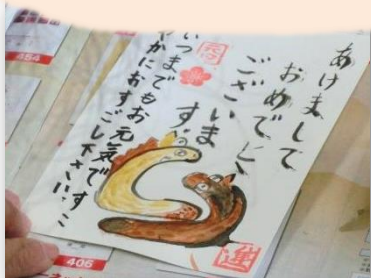 あけまして
おめでとう
ございま
す。
いつまでもお元気ですこ
やかにおすごし下さい。
運
484
406